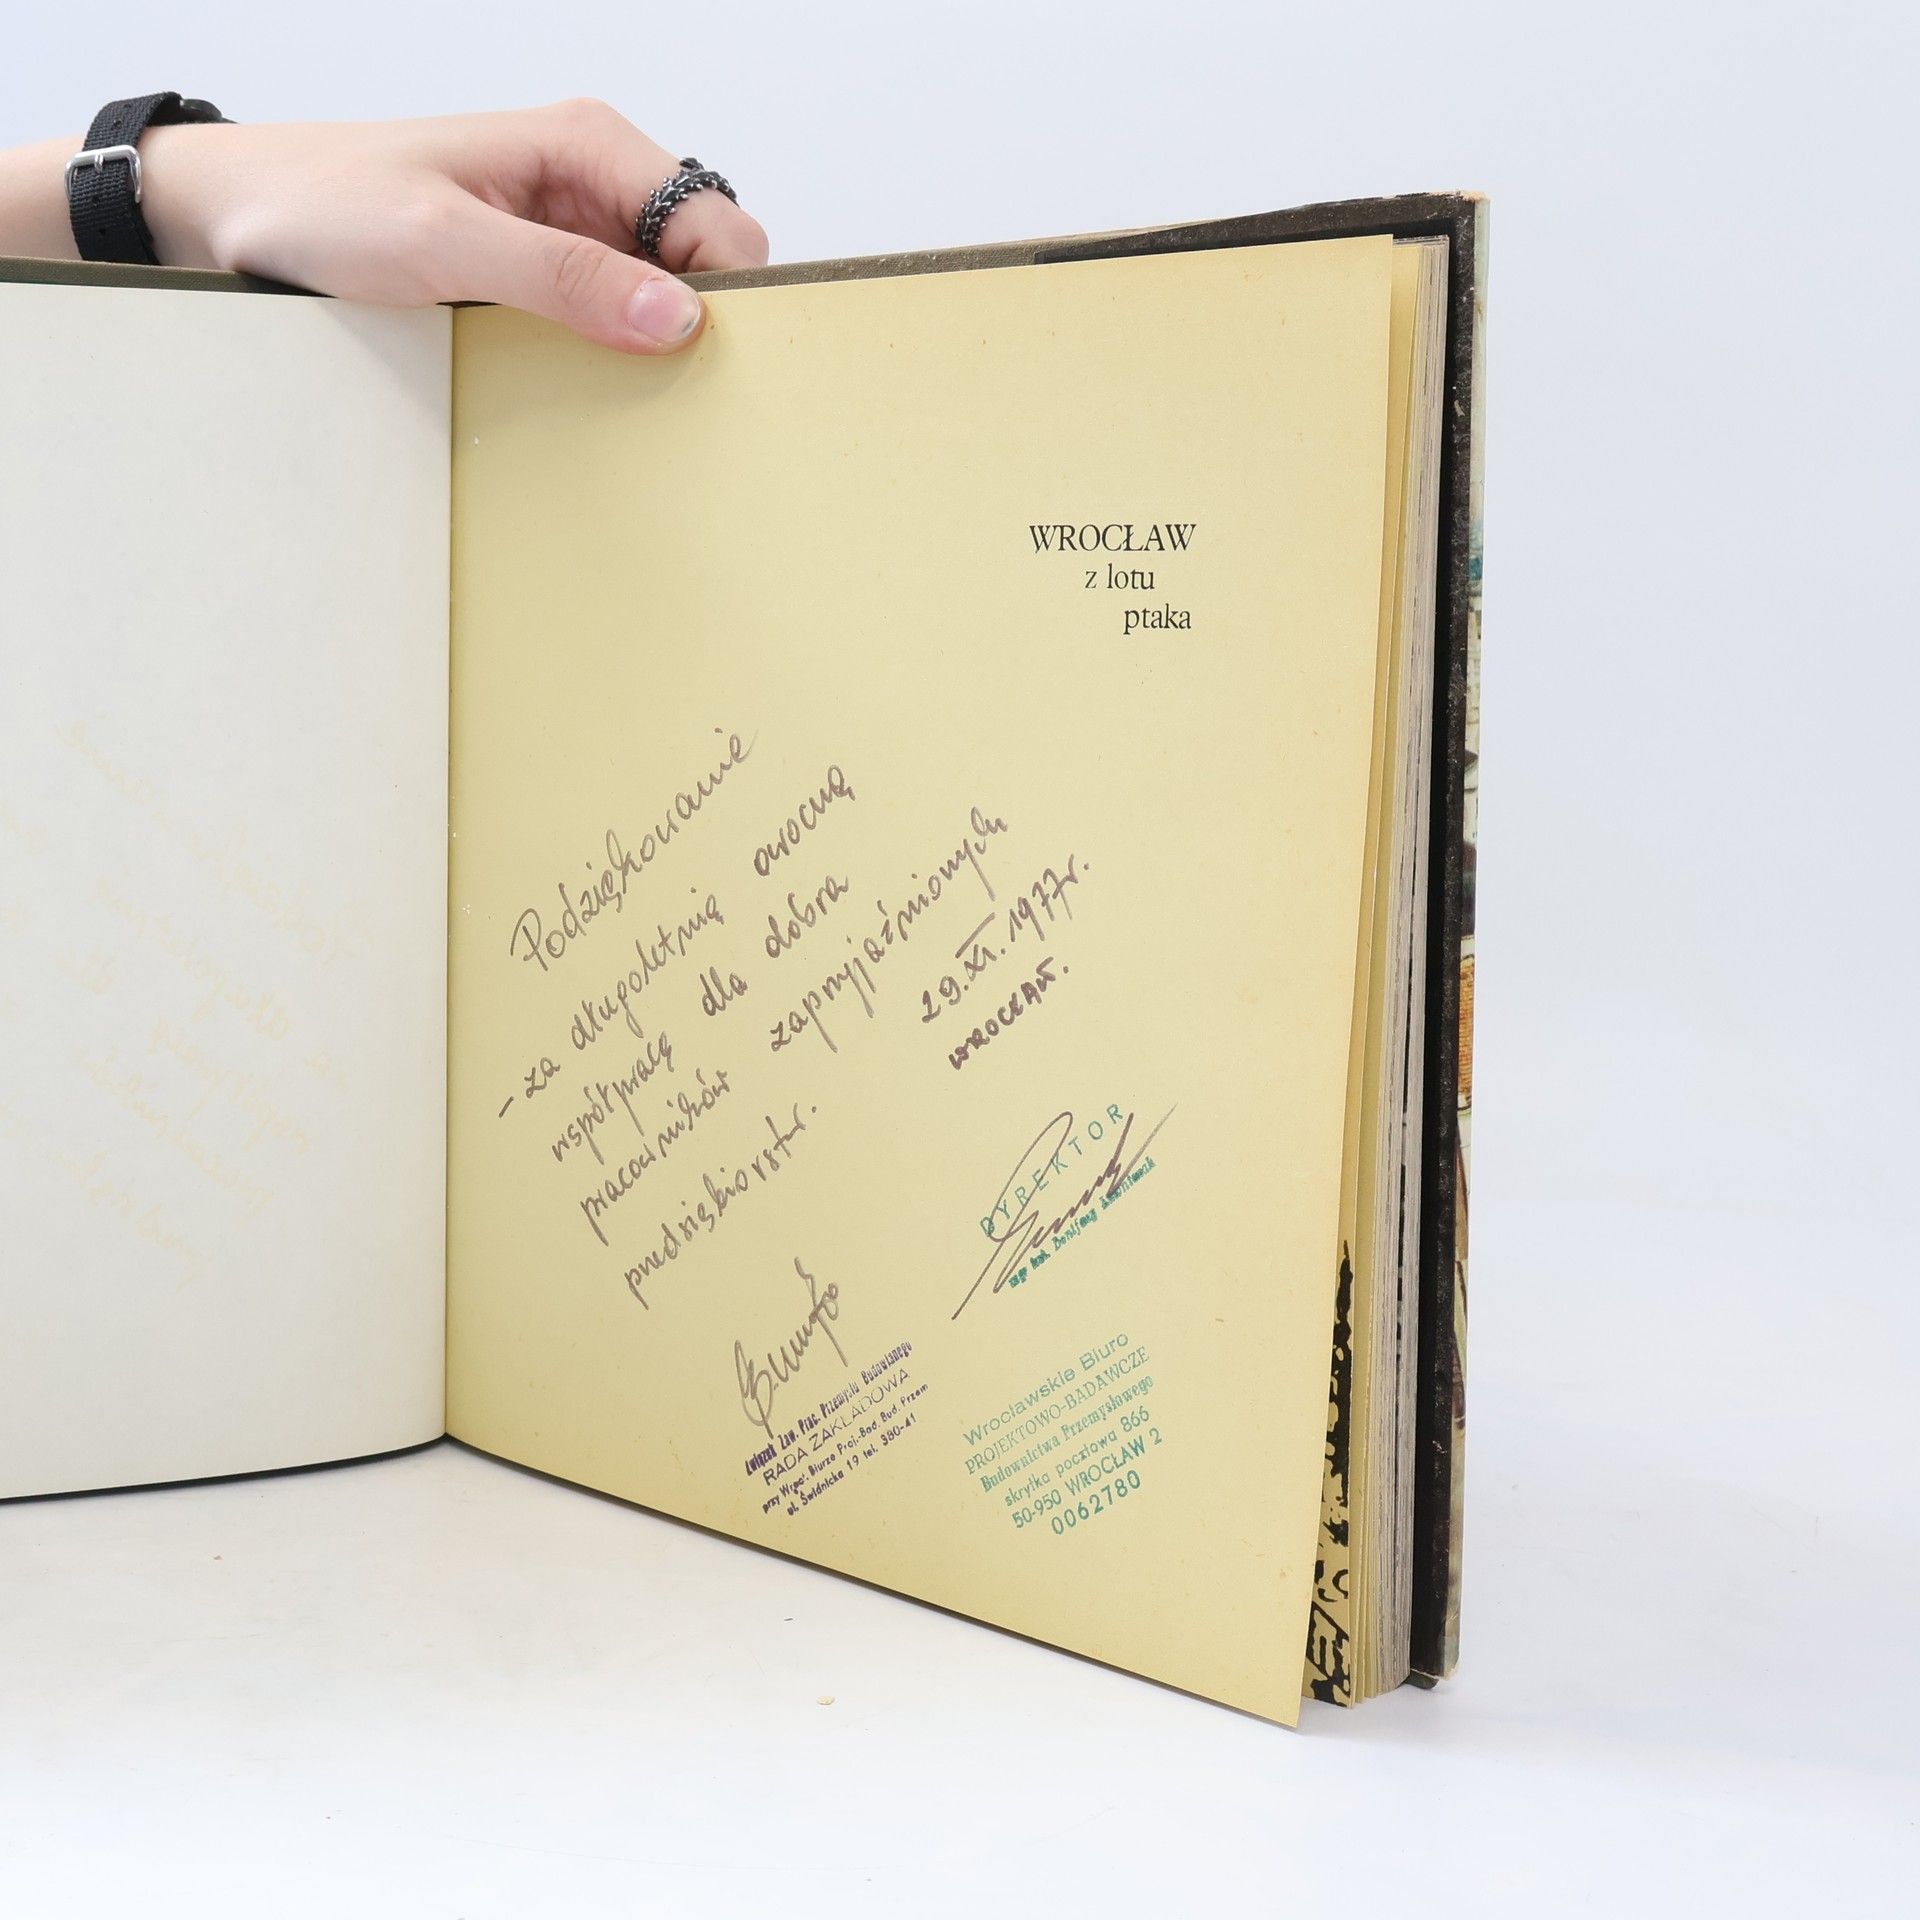 WROCŁAW
z lotu
ptaka
Podziękowanie
- za długoletnią owocną
współpracę dla dobra
pracowników zaprzyjaźnionych
przedsiębiorstw.
29.XI.1977r.
WROCŁAW.
DYREKTOR
mgr inż. Bonifacy
Związek Zaw. Prac. Przemysłu Budowlanego
RADA ZAKŁADOWA
przy Wrocł. Biurze Proj.-Bad. Bud. Przem
ul. Świdnicka 19 tel. 380-41
Wrocławskie Biuro
PROJEKTOWO-BADAWCZE
Budownictwa Przemysłowego
skrytka pocztowa 866
50-950 WROCŁAW 2
0062780